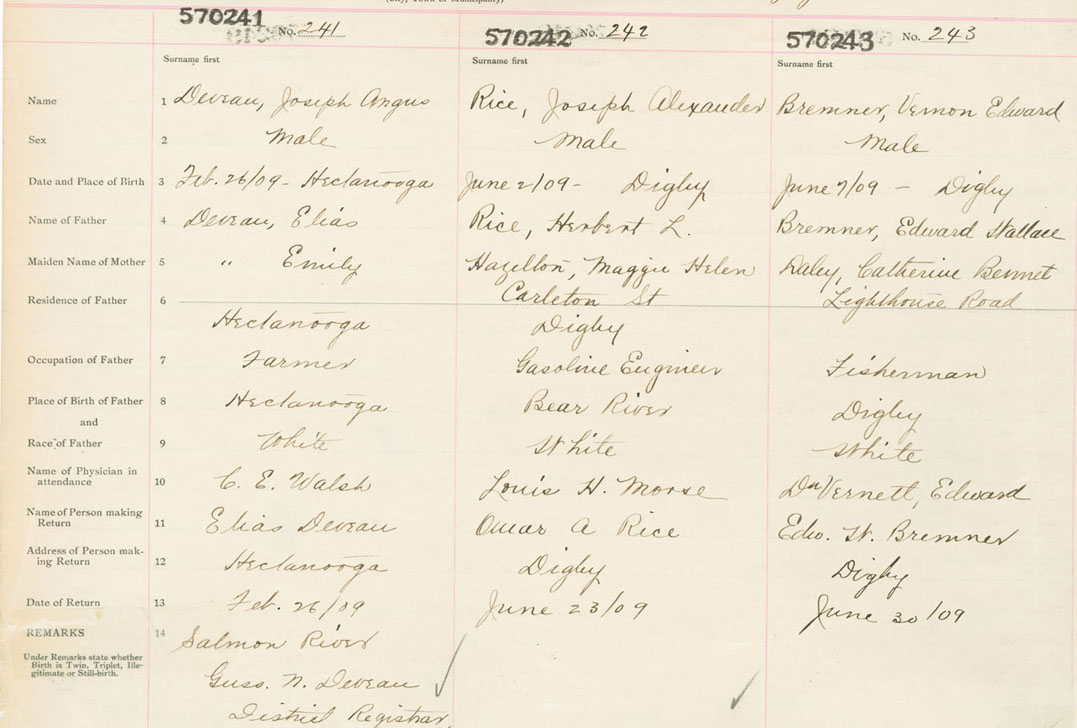 (City, Town or Municipality)
570241 No. 241 570242 No. 242 570243 No. 243
Surname first Surname first Surname first
Name 1 Deveau, Joseph Angus Rice, Joseph Alexander Bremner, Vernon Edward
Sex 2 Male Male Male
Date and Place of Birth 3 Feb. 26/09 - Hectanooga June 2/09 - Digby June 7/09 - Digby
Name of Father 4 Deveau, Elias Rice, Herbert L. Bremner, Edward Wallace
Maiden Name of Mother 5 " Emily Hazelton, Maggie Helen Daley, Catherine Bennet
Residence of Father 6 Carleton St Lighthouse Road
Hectanooga Digby
Occupation of Father 7 Farmer Gasoline Engineer Fisherman
Place of Birth of Father 8 Hectanooga Bear River Digby
and
Race of Father 9 White White White
Name of Physician in
attendance 10 C. E. Walsh Louis H. Morse DuVernett, Edward
Name of Person making
Return 11 Elias Deveau Omar A Rice Edw. W. Bremner
Address of Person mak-
ing Return 12 Hectanooga Digby Digby
Date of Return 13 Feb. 26/09 June 23/09 June 30/09
REMARKS 14 Salmon River
Under Remarks state whether
Birth is Twin, Triplet, Ille-
gitimate or Still-birth.
Guss. N. Deveau
District Registrar